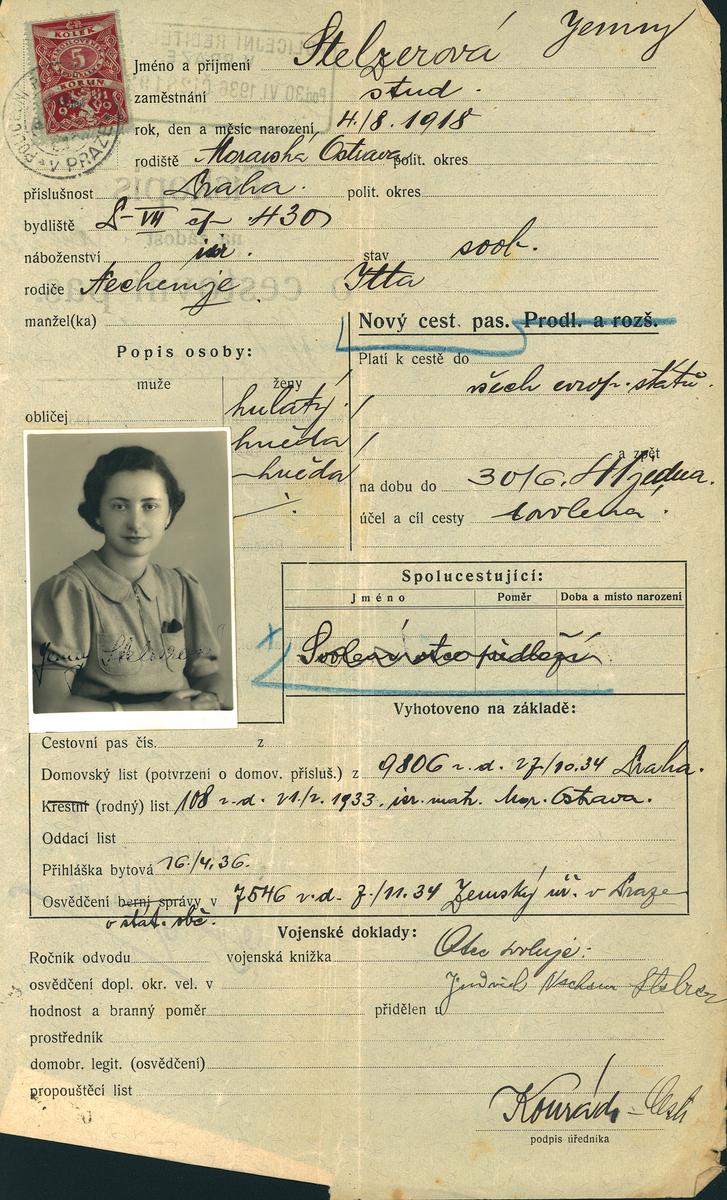 KOLEK
5
KORUN
V PRAZE
Jméno a příjmení Stelzerová Jenny
zaměstnání stud.
rok, den a měsíc narození 4./8. 1918
rodiště Moravská Ostrava polit. okres
příslušnost Praha. polit. okres
bydliště P-VII čp 430
náboženství isr. stav svob.
rodiče Nechemje Itta
manžel(ka)
Nový cest. pas. Prodl. a rozš.
Popis osoby:
Platí k cestě do
muže ženy
všech evrop. států.
obličej kulatý
hnědá
hnědá
a zpět
na dobu do 30/6. 41 jedna.
účel a cíl cesty
Spolucestující:
Jméno Poměr Doba a místo narození
Svolení otce předloží
Jenny Stelzer
Vyhotoveno na základě:
Cestovní pas čís. z
Domovský list (potvrzení o domov. přísluš.) z 9806 z. d. 27/10.34 Praha.
Křestní (rodný) list 108 z. d. 21/2. 1933, isr. mat. Mor. Ostrava.
Oddací list
Přihláška bytová 16./4. 36.
Osvědčení berní správy v 7546 z. d. 7/11.34 Zemský úř. v Praze
o stát. obč.
Vojenské doklady:
Ročník odvodu vojenská knížka Otec svoluje:
osvědčení dopl. okr. vel. v Jindřich Stelzer
hodnost a branný poměr přidělen u
prostředník
domobr. legit. (osvědčení)
propouštěcí list
Konrád
podpis úředníka